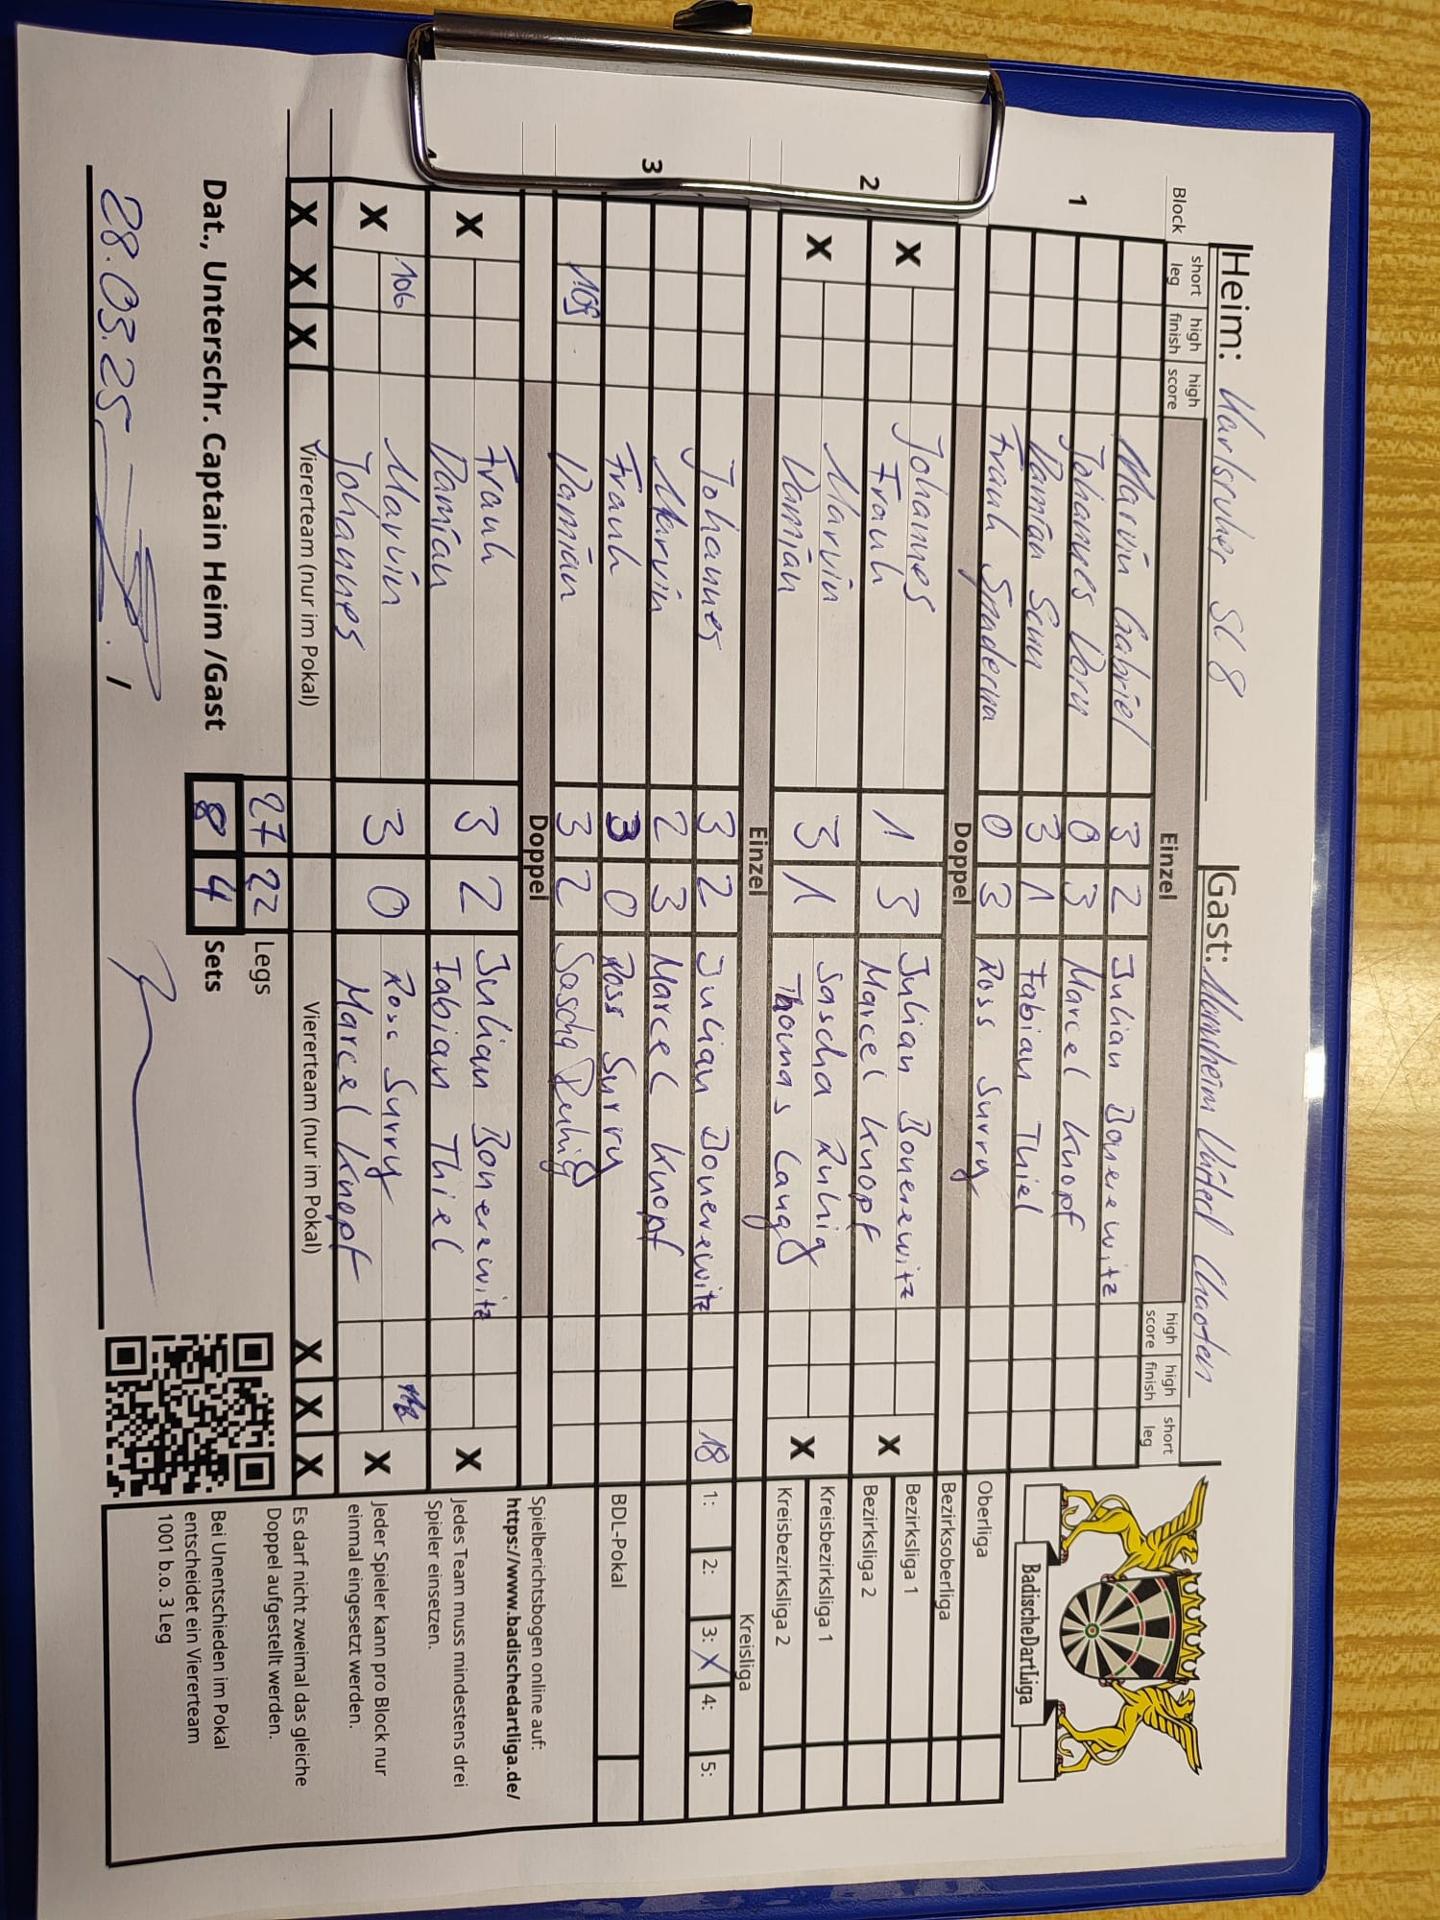 Heim: Karlsruher SC 8 Gast: Mannheim United Chaoten
Block short leg high finish high score Einzel high score high finish short leg
1
Marvin Gabriel 3 2 Julian Bonerewitz
Johannes Dorn 0 3 Marcel Knopf
Damian Senn 3 1 Fabian Thiel
Frank 0 3 Ross Surry
Doppel
2
X Johannes 1 3 Julian Bonerewitz X
Frank Marcel Knopf
X Marvin 3 1 Sascha Ruhig X
Damian Thomas Lang
Einzel
3
Johannes 3 2 Julian Bonerewitz 18
Marvin 2 3 Marcel Knopf
Frank 3 0 Ross Surry
109 Damian 3 2 Sascha Ruhig
Doppel
X Frank 3 2 Julian Bonerewitz X
Damian Fabian Thiel
X 106 Marvin 3 0 Ross Surry X
Johannes Marcel Knopf
X X X Viererteam (nur im Pokal) Viererteam (nur im Pokal) X X X
27 22 Legs
Dat., Unterschr. Captain Heim /Gast 8 4 Sets
28.03.25
BadischeDartLiga
Oberliga
Bezirksoberliga
Bezirksliga 1
Bezirksliga 2
Kreisbezirksliga 1
Kreisbezirksliga 2
Kreisliga
1: 2: 3: X 4: 5:
BDL-Pokal
Spielberichtsbogen online auf:
https://www.badischedartliga.de/
Jedes Team muss mindestens drei
Spieler einsetzen.
Jeder Spieler kann pro Block nur
einmal eingesetzt werden.
Es darf nicht zweimal das gleiche
Doppel aufgestellt werden.
Bei Unentschieden im Pokal
entscheidet ein Viererteam
1001 b.o. 3 Leg